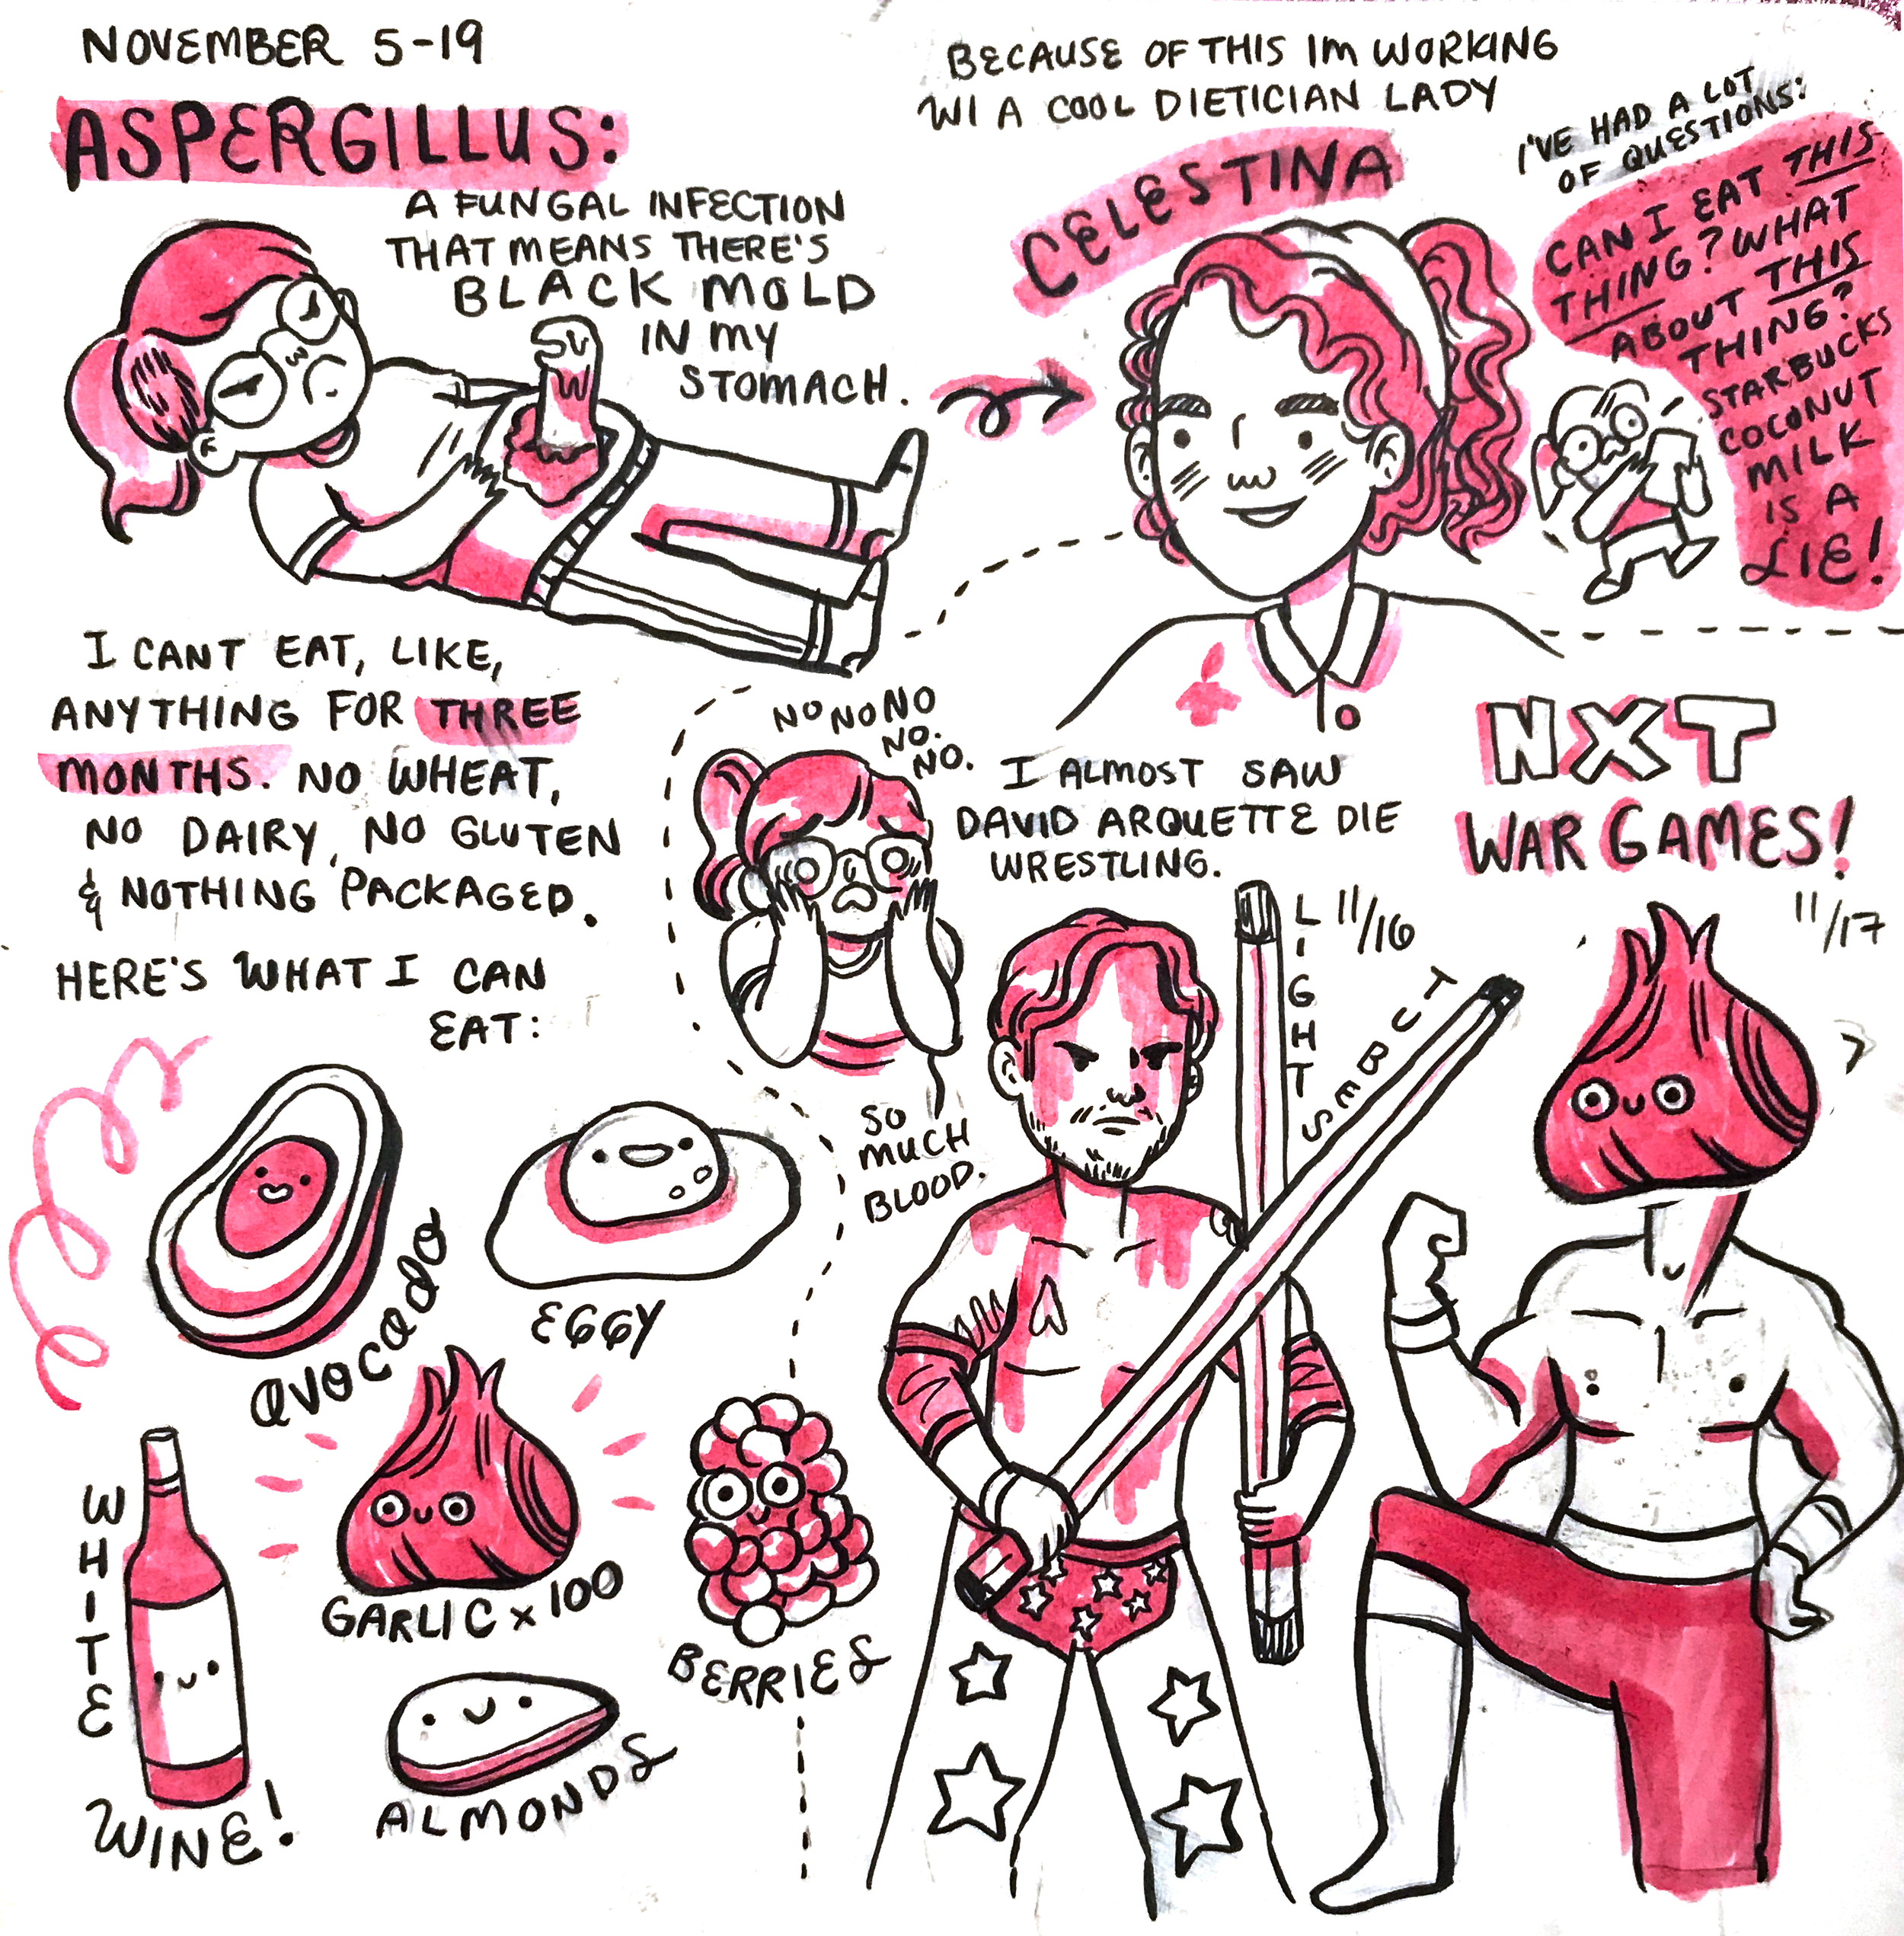 NOVEMBER 5-19
ASPERGILLUS:
A FUNGAL INFECTION
THAT MEANS THERE'S
BLACK MOLD
IN MY
STOMACH.
I CANT EAT, LIKE,
ANYTHING FOR THREE
MONTHS. NO WHEAT,
NO DAIRY, NO GLUTEN
& NOTHING PACKAGED.
HERE'S WHAT I CAN
EAT:
AVOCADO
EGGY
WHITE
WINE!
GARLIC x 100
ALMONDS
BERRIES
BECAUSE OF THIS IM WORKING
W/ A COOL DIETICIAN LADY
CELESTINA
I'VE HAD A LOT
OF QUESTIONS:
CAN I EAT THIS
THING? WHAT
ABOUT THIS
THING?
STARBUCKS
COCONUT
MILK
IS A
LIE!
NO NO NO
NO.
NO.
I ALMOST SAW
DAVID ARQUETTE DIE
WRESTLING.
11/16
SO
MUCH
BLOOD.
LIGHT
TUBES
NXT
WAR GAMES!
11/17